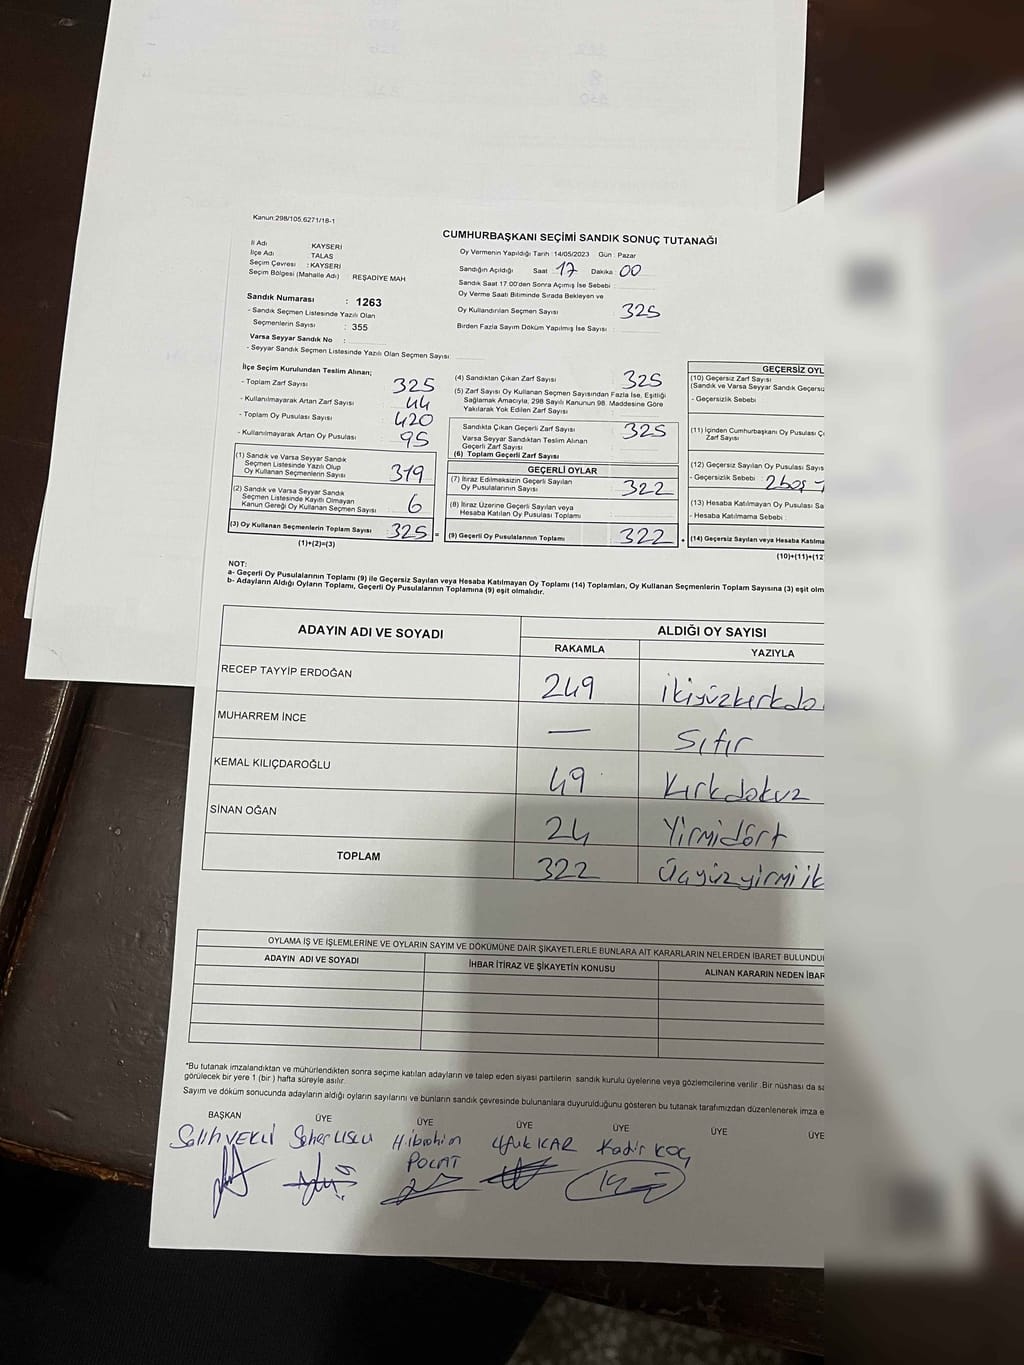 Kanun:298/105,6271/18-1
CUMHURBAŞKANI SEÇİMİ SANDIK SONUÇ TUTANAĞI
İl Adı KAYSERİ
İlçe Adı TALAS
Seçim Çevresi : KAYSERİ
Seçim Bölgesi (Mahalle Adı) REŞADİYE MAH
Oy Vermenin Yapıldığı Tarih :14/05/2023 Gün : Pazar
Sandığın Açıldığı Saat 17 Dakika 00
Sandık Saat 17:00'den Sonra Açımış İse Sebebi :
Oy Verme Saati Bitiminde Sırada Bekleyen ve
Oy Kullandırılan Seçmen Sayısı : 325
Birden Fazla Sayım Döküm Yapılmış İse Sayısı :
Sandık Numarası : 1263
- Sandık Seçmen Listesinde Yazılı Olan
Seçmenlerin Sayısı : 355
Varsa Seyyar Sandık No :
- Seyyar Sandık Seçmen Listesinde Yazılı Olan Seçmen Sayısı:
İlçe Seçim Kurulundan Teslim Alınan;
- Toplam Zarf Sayısı : 325
- Kullanılmayarak Artan Zarf Sayısı : 44
- Toplam Oy Pusulası Sayısı : 420
- Kullanılmayarak Artan Oy Pusulası : 95
(1) Sandık ve Varsa Seyyar Sandık
Seçmen Listesinde Yazılı Olup
Oy Kullanan Seçmenlerin Sayısı : 319
(2) Sandık ve Varsa Seyyar Sandık
Seçmen Listesinde Kayıtlı Olmayan
Kanun Gereği Oy Kullanan Seçmen Sayısı : 6
(3) Oy Kullanan Seçmenlerin Toplam Sayısı : 325 =
(1)+(2)=(3)
(4) Sandıktan Çıkan Zarf Sayısı : 325
(5) Zarf Sayısı Oy Kullanan Seçmen Sayısından Fazla İse, Eşitliği
Sağlamak Amacıyla, 298 Sayılı Kanunun 98. Maddesine Göre
Yakılarak Yok Edilen Zarf Sayısı :
Sandıkta Çıkan Geçerli Zarf Sayısı : 325
Varsa Seyyar Sandıktan Teslim Alınan
Geçerli Zarf Sayısı :
(6) Toplam Geçerli Zarf Sayısı :
GEÇERLİ OYLAR
(7) İtiraz Edilmeksizin Geçerli Sayılan
Oy Pusulalarının Sayısı : 322
(8) İtiraz Üzerine Geçerli Sayılan veya
Hesaba Katılan Oy Pusulası Toplamı :
(9) Geçerli Oy Pusulalarının Toplamı : 322 +
GEÇERSİZ OYL
(10) Geçersiz Zarf Sayısı
(Sandık ve Varsa Seyyar Sandık Geçersiz
- Geçersizlik Sebebi
(11) İçinden Cumhurbaşkanı Oy Pusulası Ç
Zarf Sayısı
(12) Geçersiz Sayılan Oy Pusulası Sayıs
- Geçersizlik Sebebi : 2 boş
(13) Hesaba Katılmayan Oy Pusulası Sa
- Hesaba Katılmama Sebebi :
(14) Geçersiz Sayılan veya Hesaba Katılma
(10)+(11)+(12
NOT:
a- Geçerli Oy Pusulalarının Toplamı (9) ile Geçersiz Sayılan veya Hesaba Katılmayan Oy Toplamı (14) Toplamları, Oy Kullanan Seçmenlerin Toplam Sayısına (3) eşit olm
b- Adayların Aldığı Oyların Toplamı, Geçerli Oy Pusulalarının Toplamına (9) eşit olmalıdır.
ADAYIN ADI VE SOYADI ALDIĞI OY SAYISI
RAKAMLA YAZIYLA
RECEP TAYYİP ERDOĞAN 249 ikiyüzkırkdo
MUHARREM İNCE — Sıfır
KEMAL KILIÇDAROĞLU 49 Kırkdokuz
SİNAN OĞAN 24 Yirmidört
TOPLAM 322 Üçyüzyirmiik
OYLAMA İŞ VE İŞLEMLERİNE VE OYLARIN SAYIM VE DÖKÜMÜNE DAİR ŞİKAYETLERLE BUNLARA AİT KARARLARIN NELERDEN İBARET BULUNDU
ADAYIN ADI VE SOYADI İHBAR İTİRAZ VE ŞİKAYETİN KONUSU ALINAN KARARIN NEDEN İBAR
*Bu tutanak imzalandıktan ve mühürlendikten sonra seçime katılan adayların ve talep eden siyasi partilerin sandık kurulu üyelerine veya gözlemcilerine verilir .Bir nüshası da sa
görülecek bir yere 1 (bir ) hafta süreyle asılır.
Sayım ve döküm sonucunda adayların aldığı oyların sayılarını ve bunların sandık çevresinde bulunanlara duyurulduğunu gösteren bu tutanak tarafımızdan düzenlenerek imza e
BAŞKAN ÜYE ÜYE ÜYE ÜYE ÜYE ÜYE
Salih VEKLİ Seher USLU H.ibrahim Ufuk ICAR Kadir KOÇ
POLAT